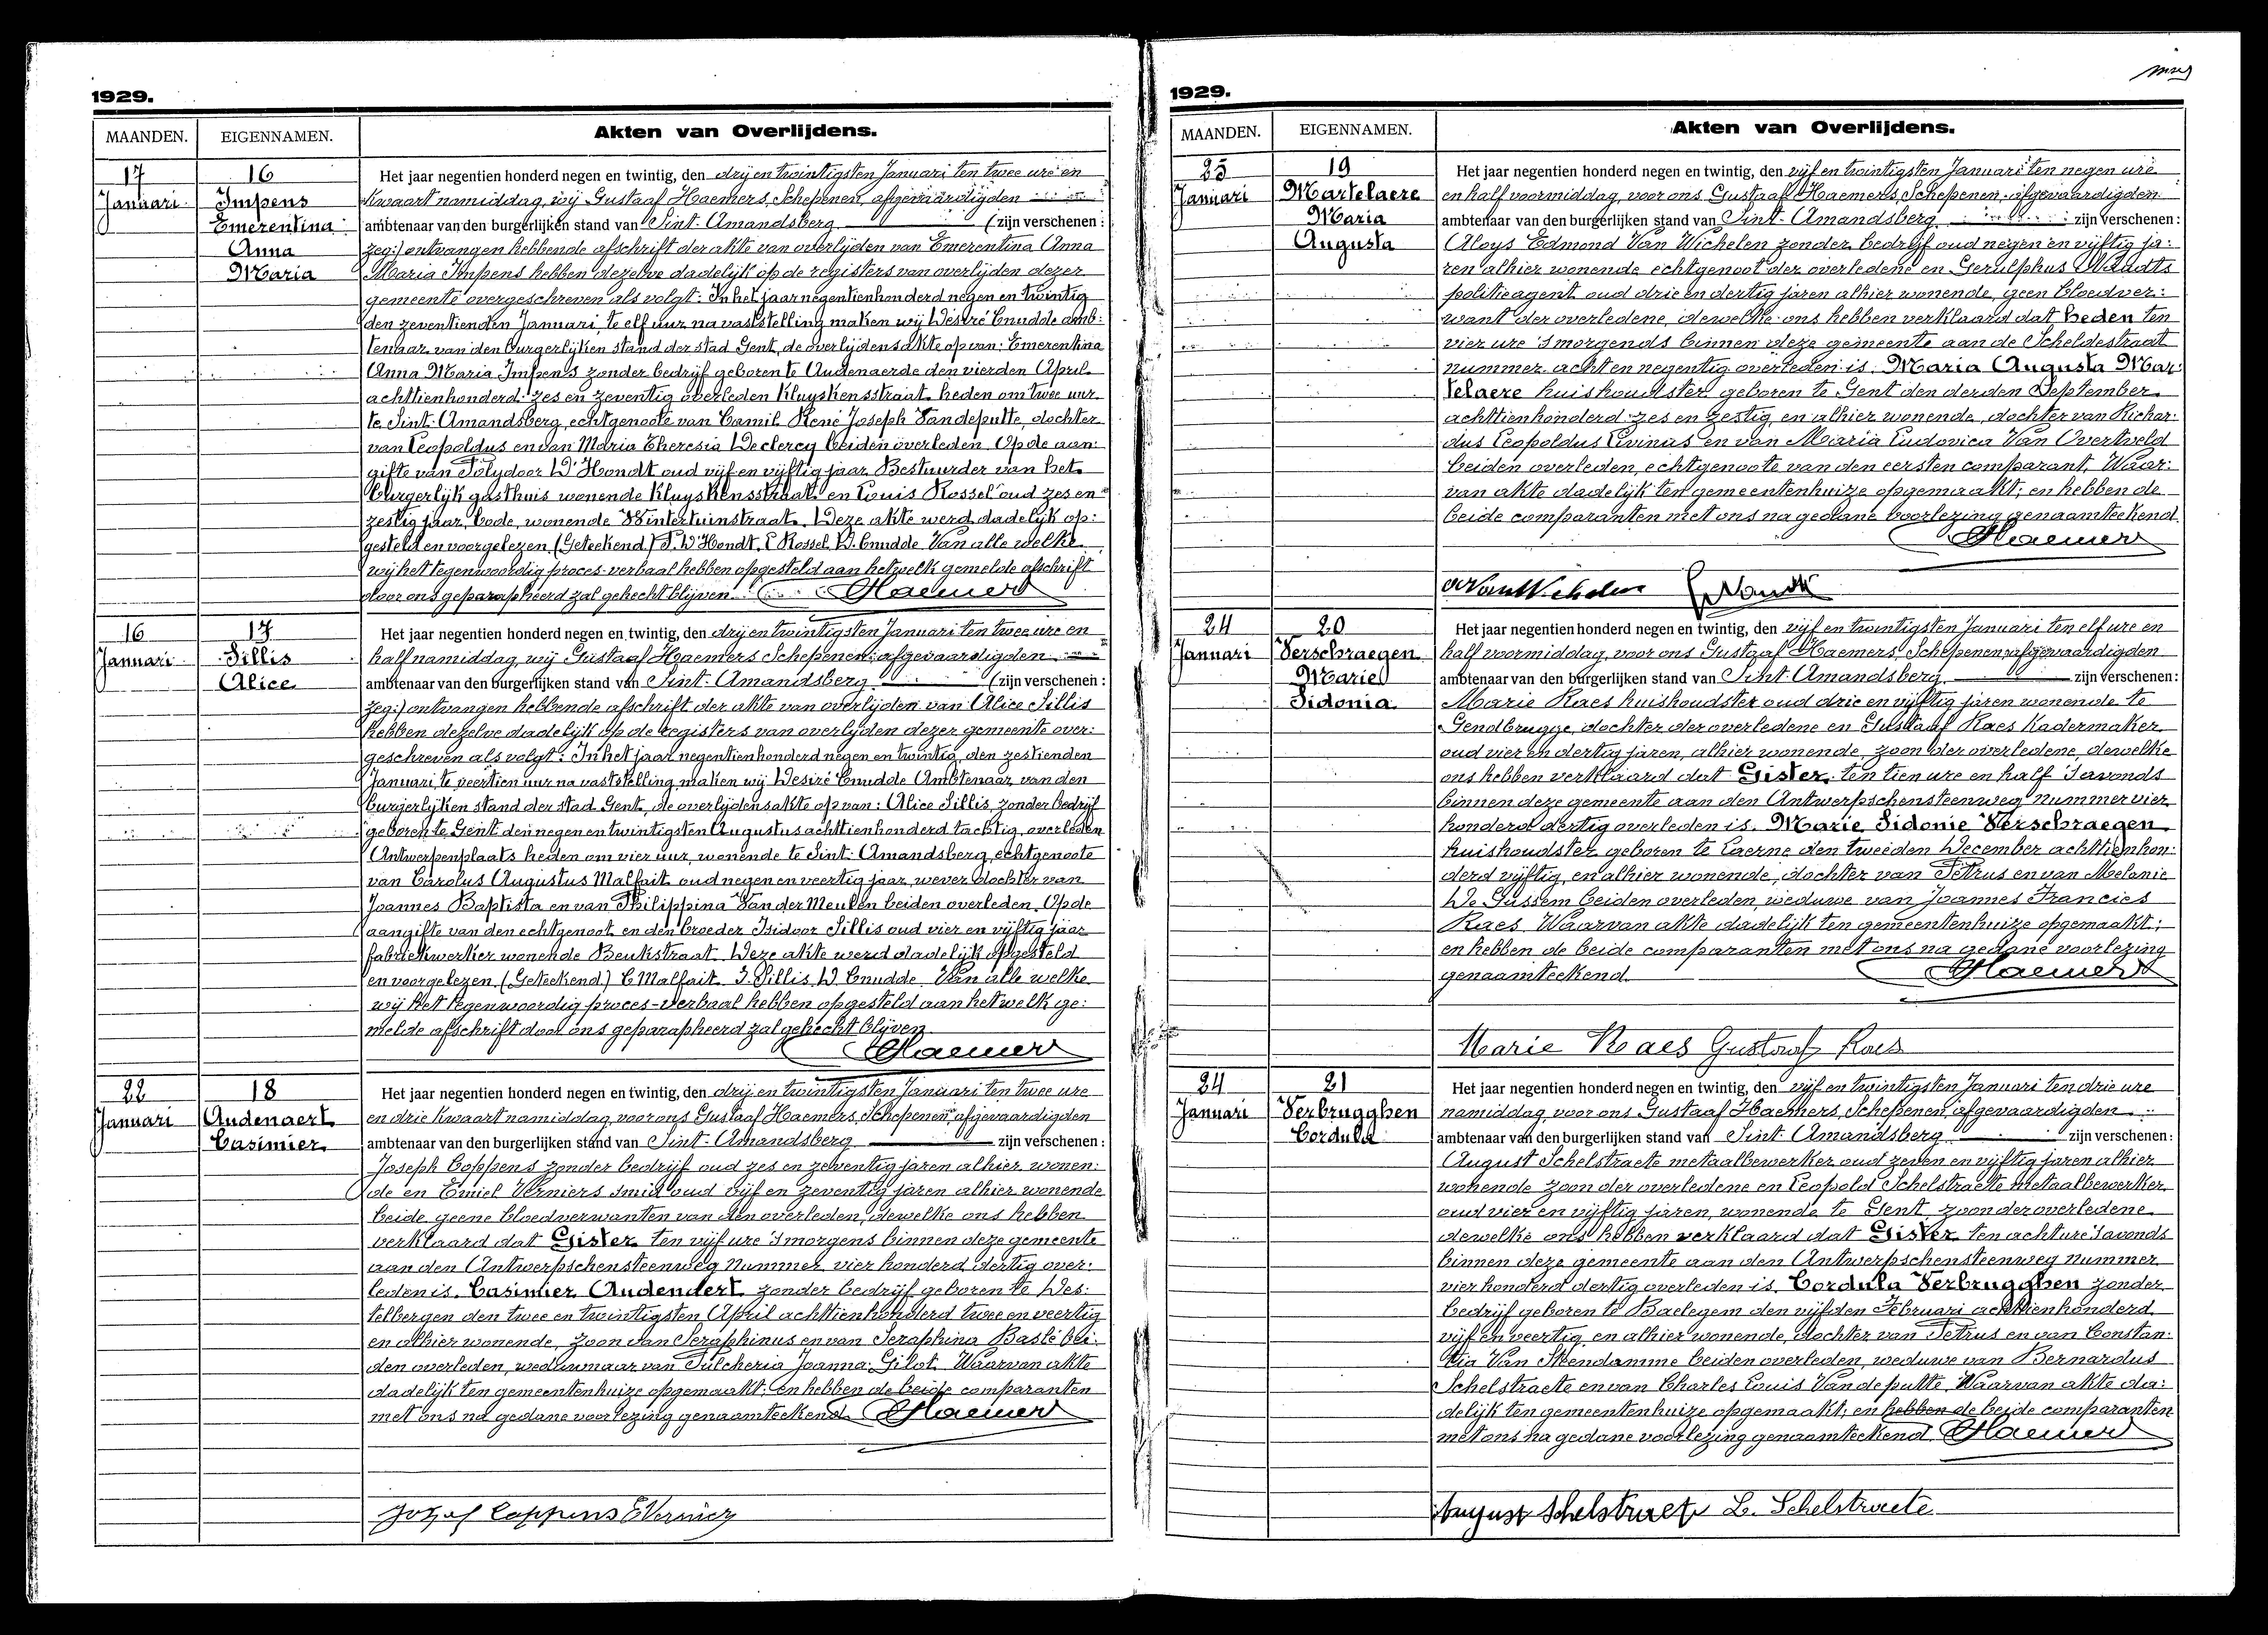 1929.
MAANDEN. EIGENNAMEN. Akten van Overlijdens.
17 16 Het jaar negentien honderd negen en twintig, den drij en twintigsten Januari ten twee ure en
Januari Impens kwaart namiddag, wij Gustaaf Haemers, Schepenen, afgevaardigden
Emerentina ambtenaar van den burgerlijken stand van Sint-Amandsberg (zijn verschenen:
Anna zeg:) ontvangen hebbende afschrift der akte van overlijden van Emerentina Anna
Maria Maria Impens hebben dezelve dadelijk op de registers van overlijden dezer
gemeente overgeschreven als volgt: In het jaar negentienhonderd negen en twintig
den zeventienden Januari, te elf uur na vaststelling maken wij Désiré Cnudde amb:
tenaar van den burgerlijken stand der stad Gent, de overlijdensakte op van: Emerentina
Anna Maria Impens zonder bedrijf geboren te Audenaerde den vierden April
achttienhonderd zes en zeventig overleden Kluyskensstraat heden om twee uur
te Sint-Amandsberg, echtgenoote van Camil René Joseph Vandeputte, dochter
van Leopoldus en van Maria Theresia Declercq beiden overleden. Op de aan:
gifte van Polydoor D'Hondt oud vijf en vijftig jaar Bestuurder van het
burgerlijk gasthuis wonende Kluyskensstraat en Louis Rossel oud zes en
zestig jaar, bode, wonende Wintertuinstraat. Deze akte werd dadelijk op:
gesteld en voorgelezen (Geteekend) P. D'Hondt, L Rossel, D. Cnudde Van alle welke
wij het tegenwoordig proces-verbaal hebben opgesteld aan hetwelk gemelde afschrift
door ons geparapheerd zal gehecht blijven. Haemers
16 17 Het jaar negentien honderd negen en twintig, den drij en twintigsten Januari ten twee ure en
Januari Sillis half namiddag, wij Gustaaf Haemers Schepenen: afgevaardigden
Alice ambtenaar van den burgerlijken stand van Sint-Amandsberg (zijn verschenen:
zeg:) ontvangen hebbende afschrift der akte van overlijden van Alice Sillis
hebben dezelve dadelijk op de registers van overlijden dezer gemeente over:
geschreven als volgt: In het jaar negentienhonderd negen en twintig, den zestienden
Januari te veertien uur na vaststelling maken wij Desiré Cnudde Ambtenaar van den
burgerlijken stand der stad Gent, de overlijdensakte op van: Alice Sillis, zonder bedrijf
geboren te Gent den negen en twintigsten Augustus achttienhonderd tachtig, overleden
Antwerpenplaats heden om vier uur, wonende te Sint-Amandsberg, echtgenoote
van Carolus Augustus Malfait oud negen en veertig jaar, wever dochter van
Joannes Baptista en van Philippina Van der Meulen beiden overleden. Op de
aangifte van den echtgenoot en den broeder Isidoor Sillis oud vier en vijftig jaar
fabriekwerker wonende Beukstraat. Deze akte werd dadelijk opgesteld
en voorgelezen (Geteekend) C Malfait. I. Sillis, D. Cnudde Van alle welke
wij het tegenwoordig proces-verbaal hebben opgesteld aan hetwelk ge:
melde afschrift door ons geparapheerd zal gehecht blijven.
Haemers
22 18 Het jaar negentien honderd negen en twintig, den drij en twintigsten Januari ten twee ure
Januari Audenaert en drie kwaart namiddag, voor ons Gustaaf Haemers, Schepenen, afgevaardigden
Casimier ambtenaar van den burgerlijken stand van Sint-Amandsberg zijn verschenen:
Joseph Coppens zonder bedrijf oud zes en zeventig jaren alhier wonen:
de en Emiel Verniers smid oud vijf en zeventig jaren alhier wonende
beide geene bloedverwanten van den overleden, dewelke ons hebben
verklaard dat Gister ten vijf ure 's morgens binnen deze gemeente
aan den Antwerpschensteenweg nummer vier honderd dertig over:
leden is, Casimier Audenaert zonder bedrijf geboren te Des:
telbergen den twee en twintigsten April achttienhonderd twee en veertig
en alhier wonende, zoon van Seraphinus en van Seraphina Baslé bei:
den overleden, weduwnaar van Pulcheria Joanna Gilot. Waarvan akte
dadelijk ten gemeentenhuize opgemaakt: en hebben de beide comparanten
met ons na gedane voorlezing genaamteekend. Haemers
Jozef Coppens E Verniers
1929.
MAANDEN. EIGENNAMEN. Akten van Overlijdens.
25 19 Het jaar negentien honderd negen en twintig, den vijf en twintigsten Januari ten negen ure
Januari Martelaere en half voormiddag, voor ons Gustaaf Haemers, Schepenen, afgevaardigden
Maria ambtenaar van den burgerlijken stand van Sint-Amandsberg zijn verschenen:
Augusta Aloys Edmond Van Wichelen zonder bedrijf oud negen en vijftig ja:
ren alhier wonende echtgenoot der overledene en Gerulphus
politieagent oud drie en dertig jaren alhier wonende, geen bloedver:
want der overledene, dewelke ons hebben verklaard dat heden ten
vier ure 's morgends binnen deze gemeente aan de Scheldestraat
nummer acht en negentig overleden is, Maria Augusta Mar:
telaere huishoudster geboren te Gent den derden September
achttienhonderd zes en zestig, en alhier wonende, dochter van Richar:
dus Leopoldus Livinus en van Maria Ludovica Van Overtveld
beiden overleden, echtgenoote van den eersten comparant. Waar:
van akte dadelijk ten gemeentenhuize opgemaakt; en hebben de
beide comparanten met ons na gedane voorlezing genaamteekend.
Haemers
VanWichelen
24 20 Het jaar negentien honderd negen en twintig, den vijf en twintigsten Januari ten elf ure en
Januari Verschraegen half voormiddag, voor ons Gustaaf Haemers, Schepenen, afgevaardigden
Marie ambtenaar van den burgerlijken stand van Sint-Amandsberg, zijn verschenen:
Sidonia Marie Raes huishoudster oud drie en vijftig jaren wonende te
Gendbrugge, dochter der overledene en Gustaaf Raes Kadermaker
oud vier en dertig jaren, alhier wonende, zoon der overledene, dewelke
ons hebben verklaard dat Gister ten tien ure en half 's avonds
binnen deze gemeente aan den Antwerpschensteenweg nummer vier
honderd dertig overleden is, Marie Sidonie Verschraegen
huishoudster geboren te Laerne den tweeden December achttienhon:
derd vijftig, en alhier wonende, dochter van Petrus en van Melanie
De Gussem beiden overleden, weduwe van Joannes Francies
Raes. Waarvan akte dadelijk ten gemeentenhuize opgemaakt;
en hebben de beide comparanten met ons na gedane voorlezing
genaamteekend. Haemers
Marie Raes Gustaaf Raes
24 21 Het jaar negentien honderd negen en twintig, den vijf en twintigsten Januari ten drie ure
Januari Verbrugghen namiddag, voor ons Gustaaf Haemers, Schepenen, afgevaardigden
Cordula ambtenaar van den burgerlijken stand van Sint-Amandsberg zijn verschenen:
August Schelstraete metaalbewerker oud zeven en vijftig jaren alhier
wonende zoon der overledene en Leopold Schelstraete metaalbewerker
oud vier en vijftig jaren, wonende te Gent, zoon der overledene
dewelke ons hebben verklaard dat Gister ten acht ure 's avonds
binnen deze gemeente aan den Antwerpschensteenweg nummer
vier honderd dertig overleden is, Cordula Verbrugghen zonder
bedrijf geboren te Baelegem den vijfden Februari achttienhonderd
vijf en veertig, en alhier wonende, dochter van Petrus en van Constan:
tia Van Steendamme beiden overleden, weduwe van Bernardus
Schelstraete en van Charles Louis Vandeputte. Waarvan akte da:
delijk ten gemeentenhuize opgemaakt; en hebben de beide comparanten
met ons na gedane voorlezing genaamteekend. Haemers
August Schelstraete L. Schelstraete